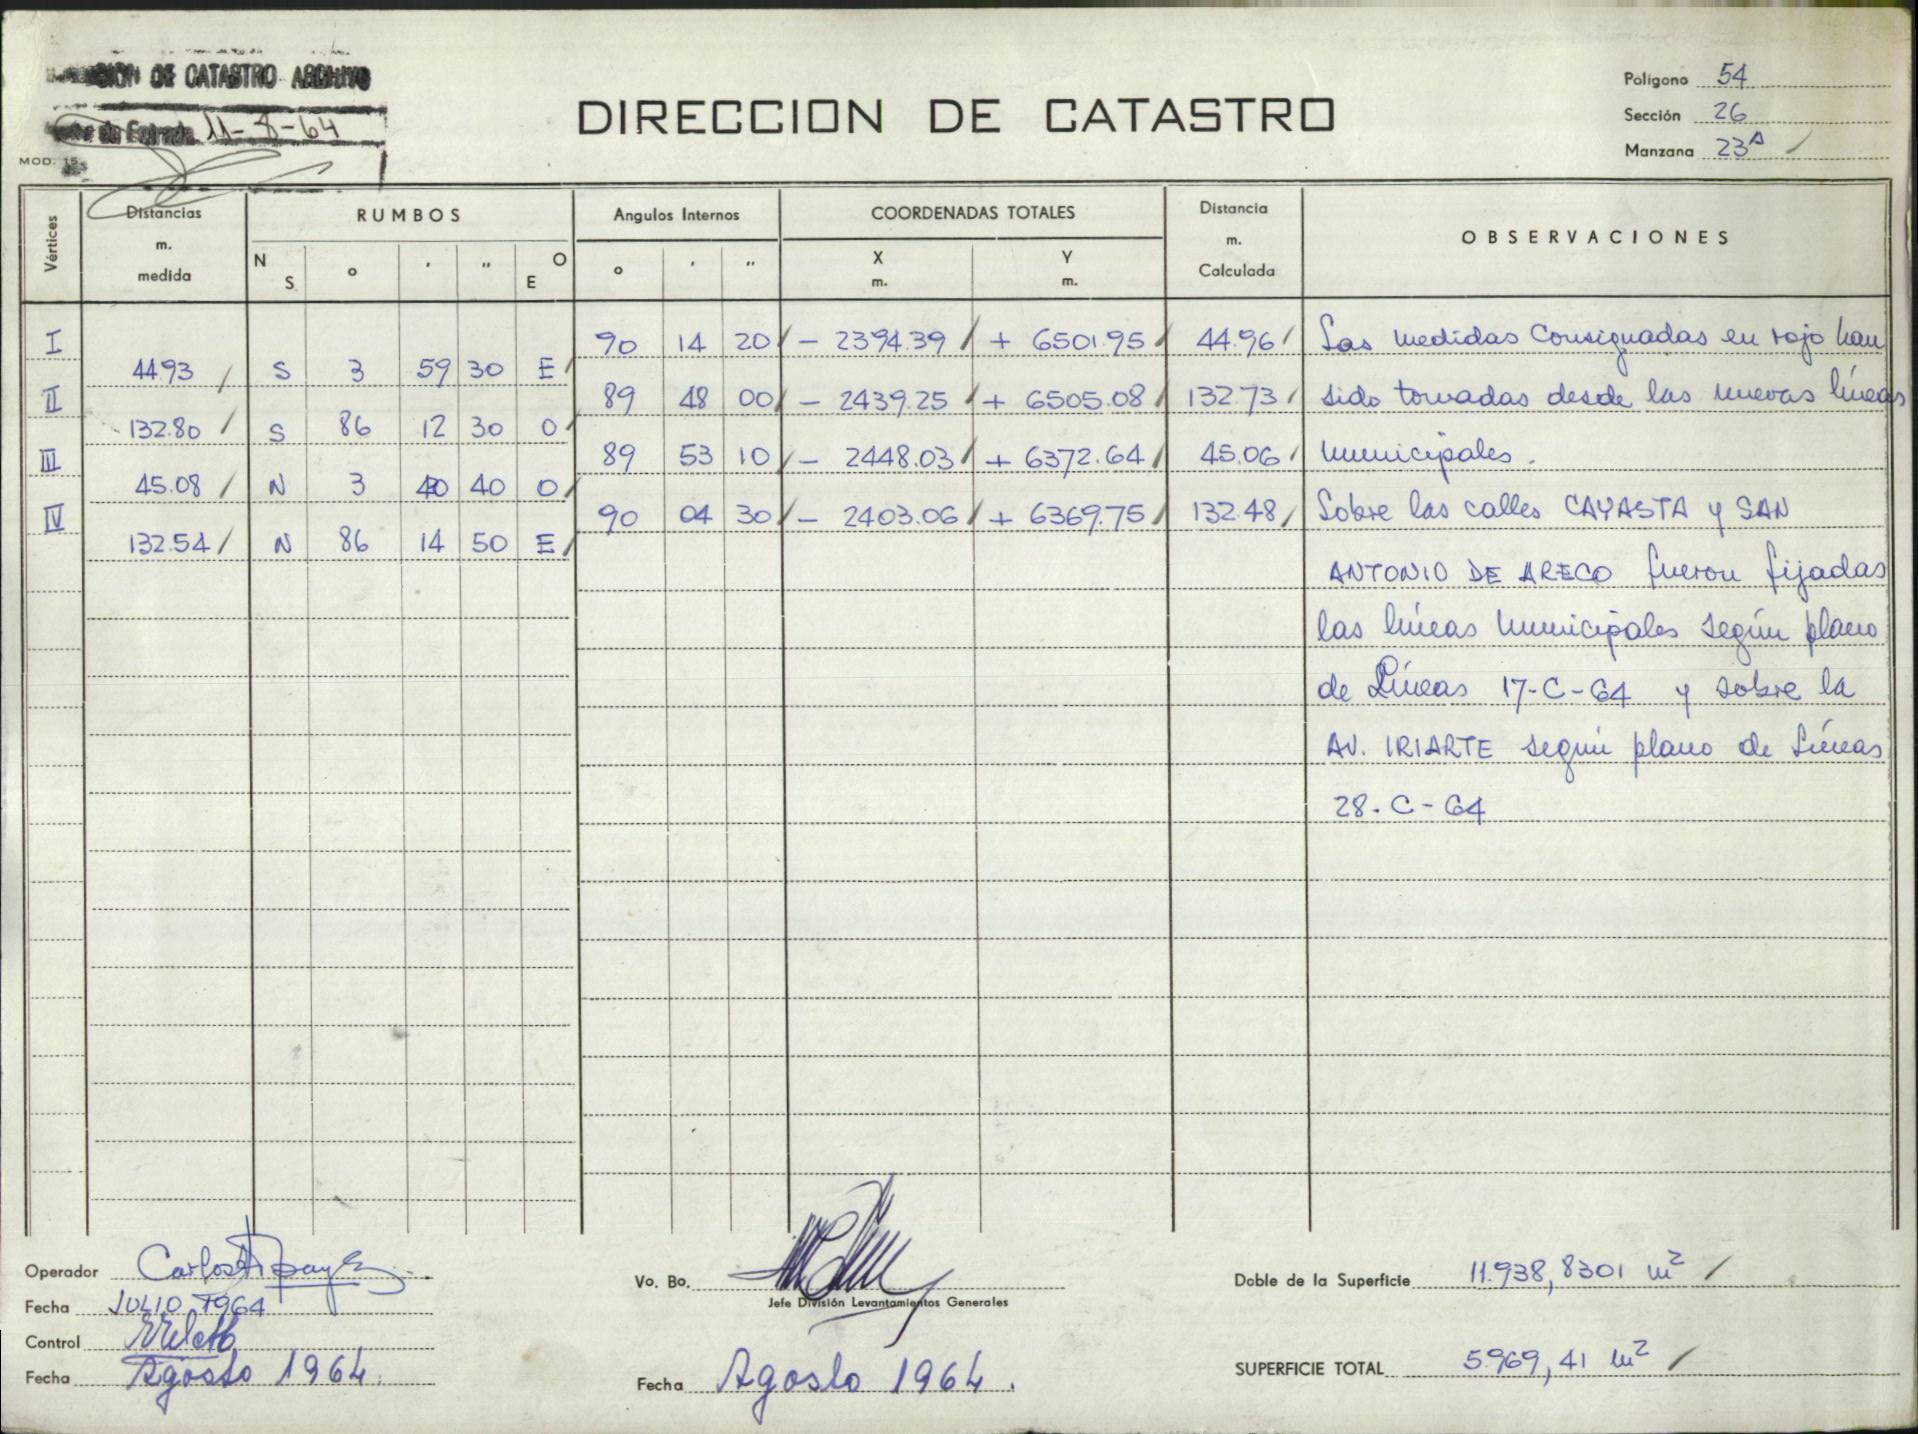 DE CATASTRO ARCHIVO
de Entrada 11-8-64
MOD. 15
DIRECCION DE CATASTRO
Polígono 54
Sección 26
Manzana 23A
Vértices
Distancias m. medida
RUMBOS
N S o ' '' O E
Angulos Internos
o ' ''
COORDENADAS TOTALES
X m. Y m.
Distancia m. Calculada
OBSERVACIONES
I 90 14 20 - 2394.39 + 6501.95 44.96 Las medidas consignadas en rojo han
44.93 S 3 59 30 E
II 89 48 00 - 2439.25 + 6505.08 132.73 sido tomadas desde las nuevas líneas
132.80 S 86 12 30 O
III 89 53 10 - 2448.03 + 6372.64 45.06 municipales.
45.08 N 3 40 40 O
IV 90 04 30 - 2403.06 + 6369.75 132.48 Sobre las calles CAYASTA y SAN
132.54 N 86 14 50 E
ANTONIO DE ARECO fueron fijadas
las líneas municipales según plano
de Líneas 17-C-64 y sobre la
AV. IRIARTE según plano de Líneas
28-C-64
Operador Carlos
Fecha JULIO 1964
Control
Fecha Agosto 1964.
Vo. Bo.
Jefe División Levantamientos Generales
Fecha Agosto 1964.
Doble de la Superficie 11.938,8301 m2
SUPERFICIE TOTAL 5.969,41 m2